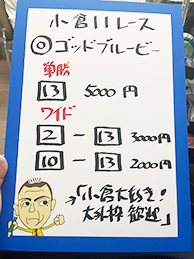 小倉11レース
◎ゴッドブルービー
単勝
13 5000円
ワイド
2 - 13 3000円
10 - 13 2000円
→「小倉大好き!
大外枠歓迎」